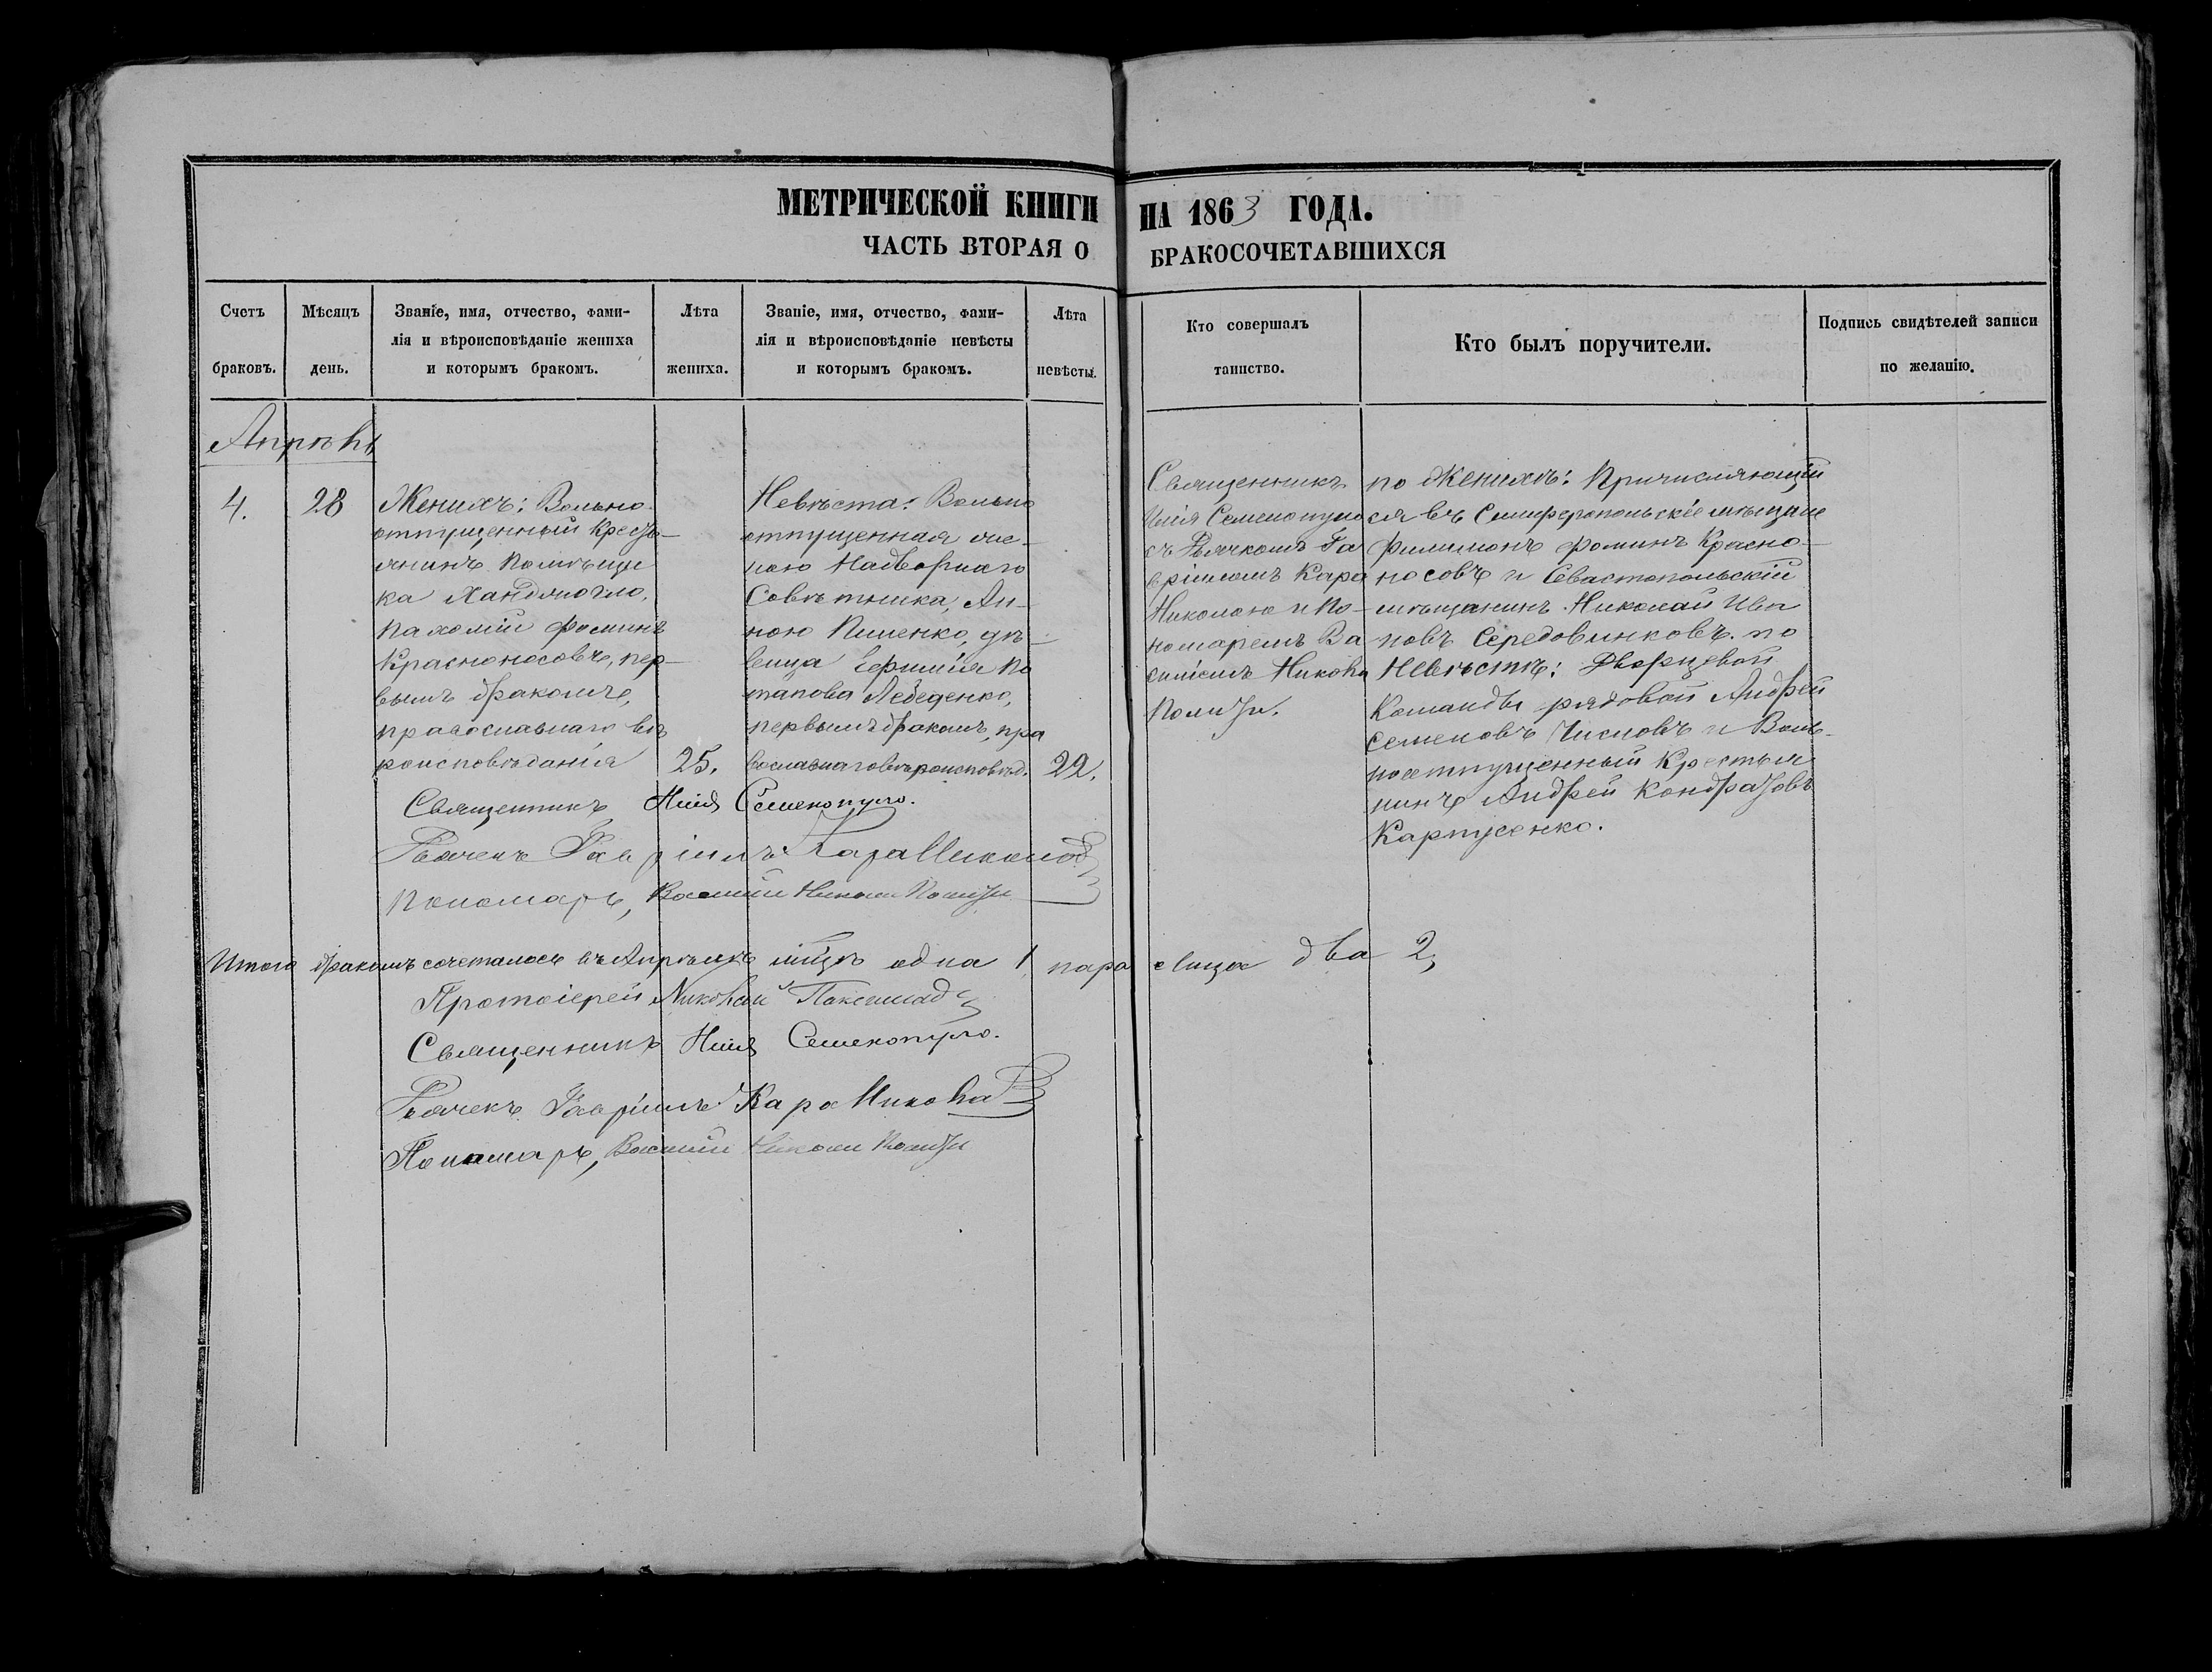 МЕТРИЧЕСКОЙ КНИГИ НА 1863 ГОДА.
ЧАСТЬ ВТОРАЯ О БРАКОСОЧЕТАВШИХСЯ
Счетъ
браковъ.
Мѣсяцъ
день.
Званіе, имя, отчество, фами-
лія и вѣроисповѣданіе жениха
и которымъ бракомъ.
Лѣта
жениха.
Званіе, имя, отчество, фами-
лія и вѣроисповѣданіе невѣсты
и которымъ бракомъ.
Лѣта
невѣсты.
Кто совершалъ
таинство.
Кто былъ поручители.
Подпись свидѣтелей записи
по желанію.
Апрѣль
4.
28
Женихъ: Вольно-
отпущенный Кресть-
янинъ Помѣщи
ка
Пахомій Фоминъ
Красноносовъ, пер-
вымъ бракомъ,
православнаго вѣ
роисповѣданія
25.
Невѣста: Вольно
отпущенная же-
ною Надворнаго
Совѣтника, Ан-
ною Пименко, дѣ-
вица Ефимія По
тапова Лебеденко,
первымъ бракомъ, пра
вославнаго вѣроисповѣд.
22.
Священникъ
Илія Семенопуло
съ Дьячкомъ Га
вріиломъ Кара
Николою и По-
номаремъ Ва
силіемъ Никола
Полизи.
по Женихѣ: Причисляющій
ся въ Симферопольскіе мѣщане
Филимонъ Фоминъ Красно-
носовъ и Севастопольскій
мѣщанинъ Николай Ива
новъ Середовинковъ. по
Невѣстѣ: Дворцевой
Команды рядовой Андрей
Семеновъ Числовъ и Воль-
ноотпущенный Крестья
нинъ Андрей Кондратовъ
Карпусенко.
Священникъ Илія Семенопуло.
Дьячекъ Гавріилъ КараНикола
Пономарь, Василій Николи Полизи
Итого бракомъ сочеталось въ Апрѣлѣ мѣсцѣ одна 1 пара лица два 2,
Протоіерей Николай
Священникъ Илія Семенопуло.
Дьячекъ Гавріилъ КараНикола
Пономарь, Василій Николи Полизи